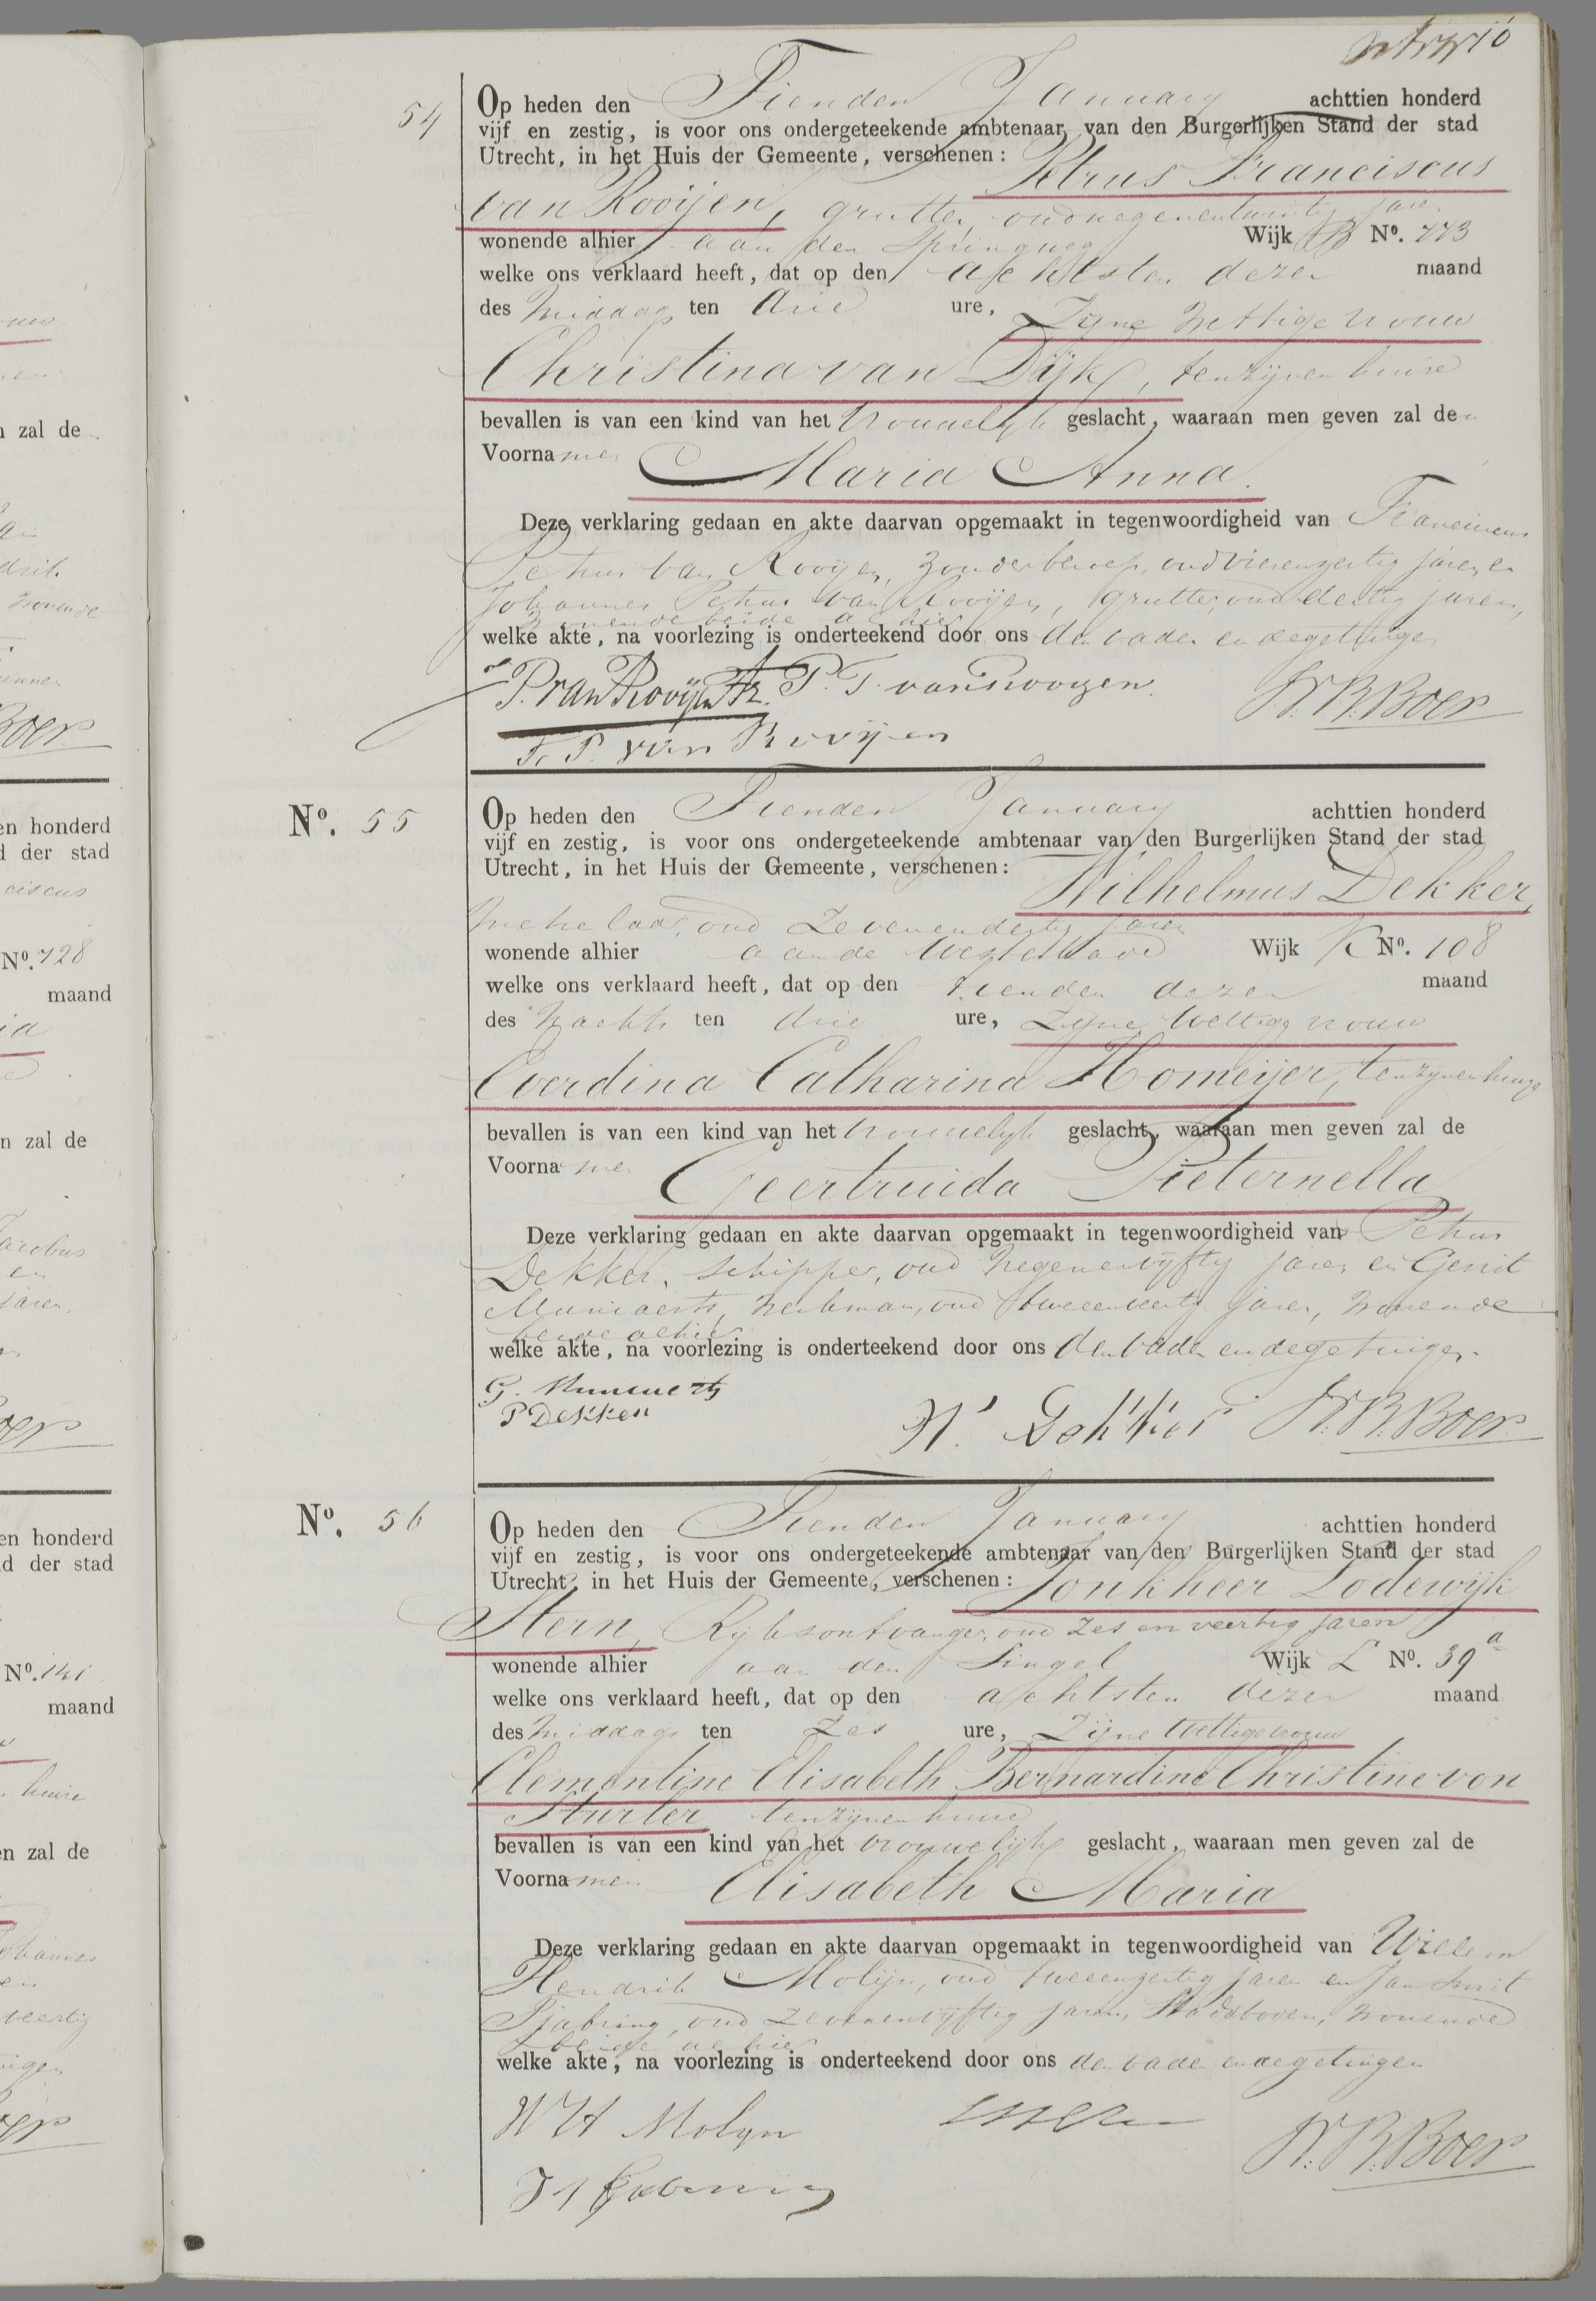 10
54
Op heden den Tienden January achttien honderd
vijf en zestig, is voor ons ondergeteekende ambtenaar van den Burgerlijken Stand der stad
Utrecht, in het Huis der Gemeente, verschenen: Petrus Franciscus
van Rooijen, grutter, oud negenentwintig jaren
wonende alhier aan den Springweg Wijk B No. 773
welke ons verklaard heeft, dat op den achtsten dezer maand
des middags ten drie ure, Zijne Wettige vrouw
Christina van Dijk, ten zijnen huize
bevallen is van een kind van het vrouwelijk geslacht, waaraan men geven zal de
Voornamen Maria Anna.
Deze verklaring gedaan en akte daarvan opgemaakt in tegenwoordigheid van Franciscus
Petrus van Rooijen, zonder beroep, oud vierenzestig jaren, en
Johannes Petrus van Rooijen, grutter, oud dertig jaren,
wonende beide alhier
welke akte, na voorlezing is onderteekend door ons den vader en de getuigen
P. van Rooijen Fz. P. F. van Rooijen. N. B. Boer
F. P. van Rooijen
No. 55
Op heden den Tienden January achttien honderd
vijf en zestig, is voor ons ondergeteekende ambtenaar van den Burgerlijken Stand der stad
Utrecht, in het Huis der Gemeente, verschenen: Wilhelmus Dekker,
Metselaar, oud zevenendertig jaren
wonende alhier aan de Wijk K No. 108
welke ons verklaard heeft, dat op den tienden dezer maand
des Nachts ten drie ure, Zijne Wettige vrouw
Everdina Catharina Homeijer, ten zijnen huize
bevallen is van een kind van het vrouwelijk geslacht, waaraan men geven zal de
Voornamen Geertruida Pieternella
Deze verklaring gedaan en akte daarvan opgemaakt in tegenwoordigheid van Petrus
Dekker, schipper, oud negenenvijftig jaren en Gerrit
Munnaerts, werkman, oud tweeenveertig jaren, wonende
beide alhier
welke akte, na voorlezing is onderteekend door ons den vader en de getuigen.
G. Munnaerts
P Dekker W. Dekker N. B. Boer
No. 56
Op heden den Tienden January achttien honderd
vijf en zestig, is voor ons ondergeteekende ambtenaar van den Burgerlijken Stand der stad
Utrecht, in het Huis der Gemeente, verschenen: Jonkheer Lodewijk
Stern, Rijksontvanger, oud zes en veertig jaren
wonende alhier aan den Singel Wijk L No. 39a
welke ons verklaard heeft, dat op den achtsten dezer maand
des middags ten Zes ure, Zijne Wettige vrouw
Clementine Elisabeth Bernardine Christine von
Sturler ten zijnen huize
bevallen is van een kind van het vrouwelijk geslacht, waaraan men geven zal de
Voornamen Elisabeth Maria
Deze verklaring gedaan en akte daarvan opgemaakt in tegenwoordigheid van Willem
Hendrik Molijn, oud tweeenzestig jaren en Jan Smit
oud zevenenvijftig jaren, Stadsboden, wonende
beide alhier
welke akte, na voorlezing is onderteekend door ons den vader en de getuigen
W H Molijn N. B. Boer